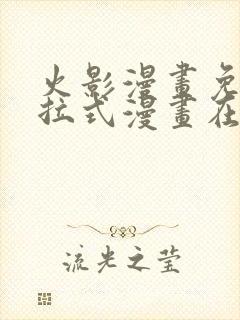 火影漫畫免
拉式漫畫在
流光之莹